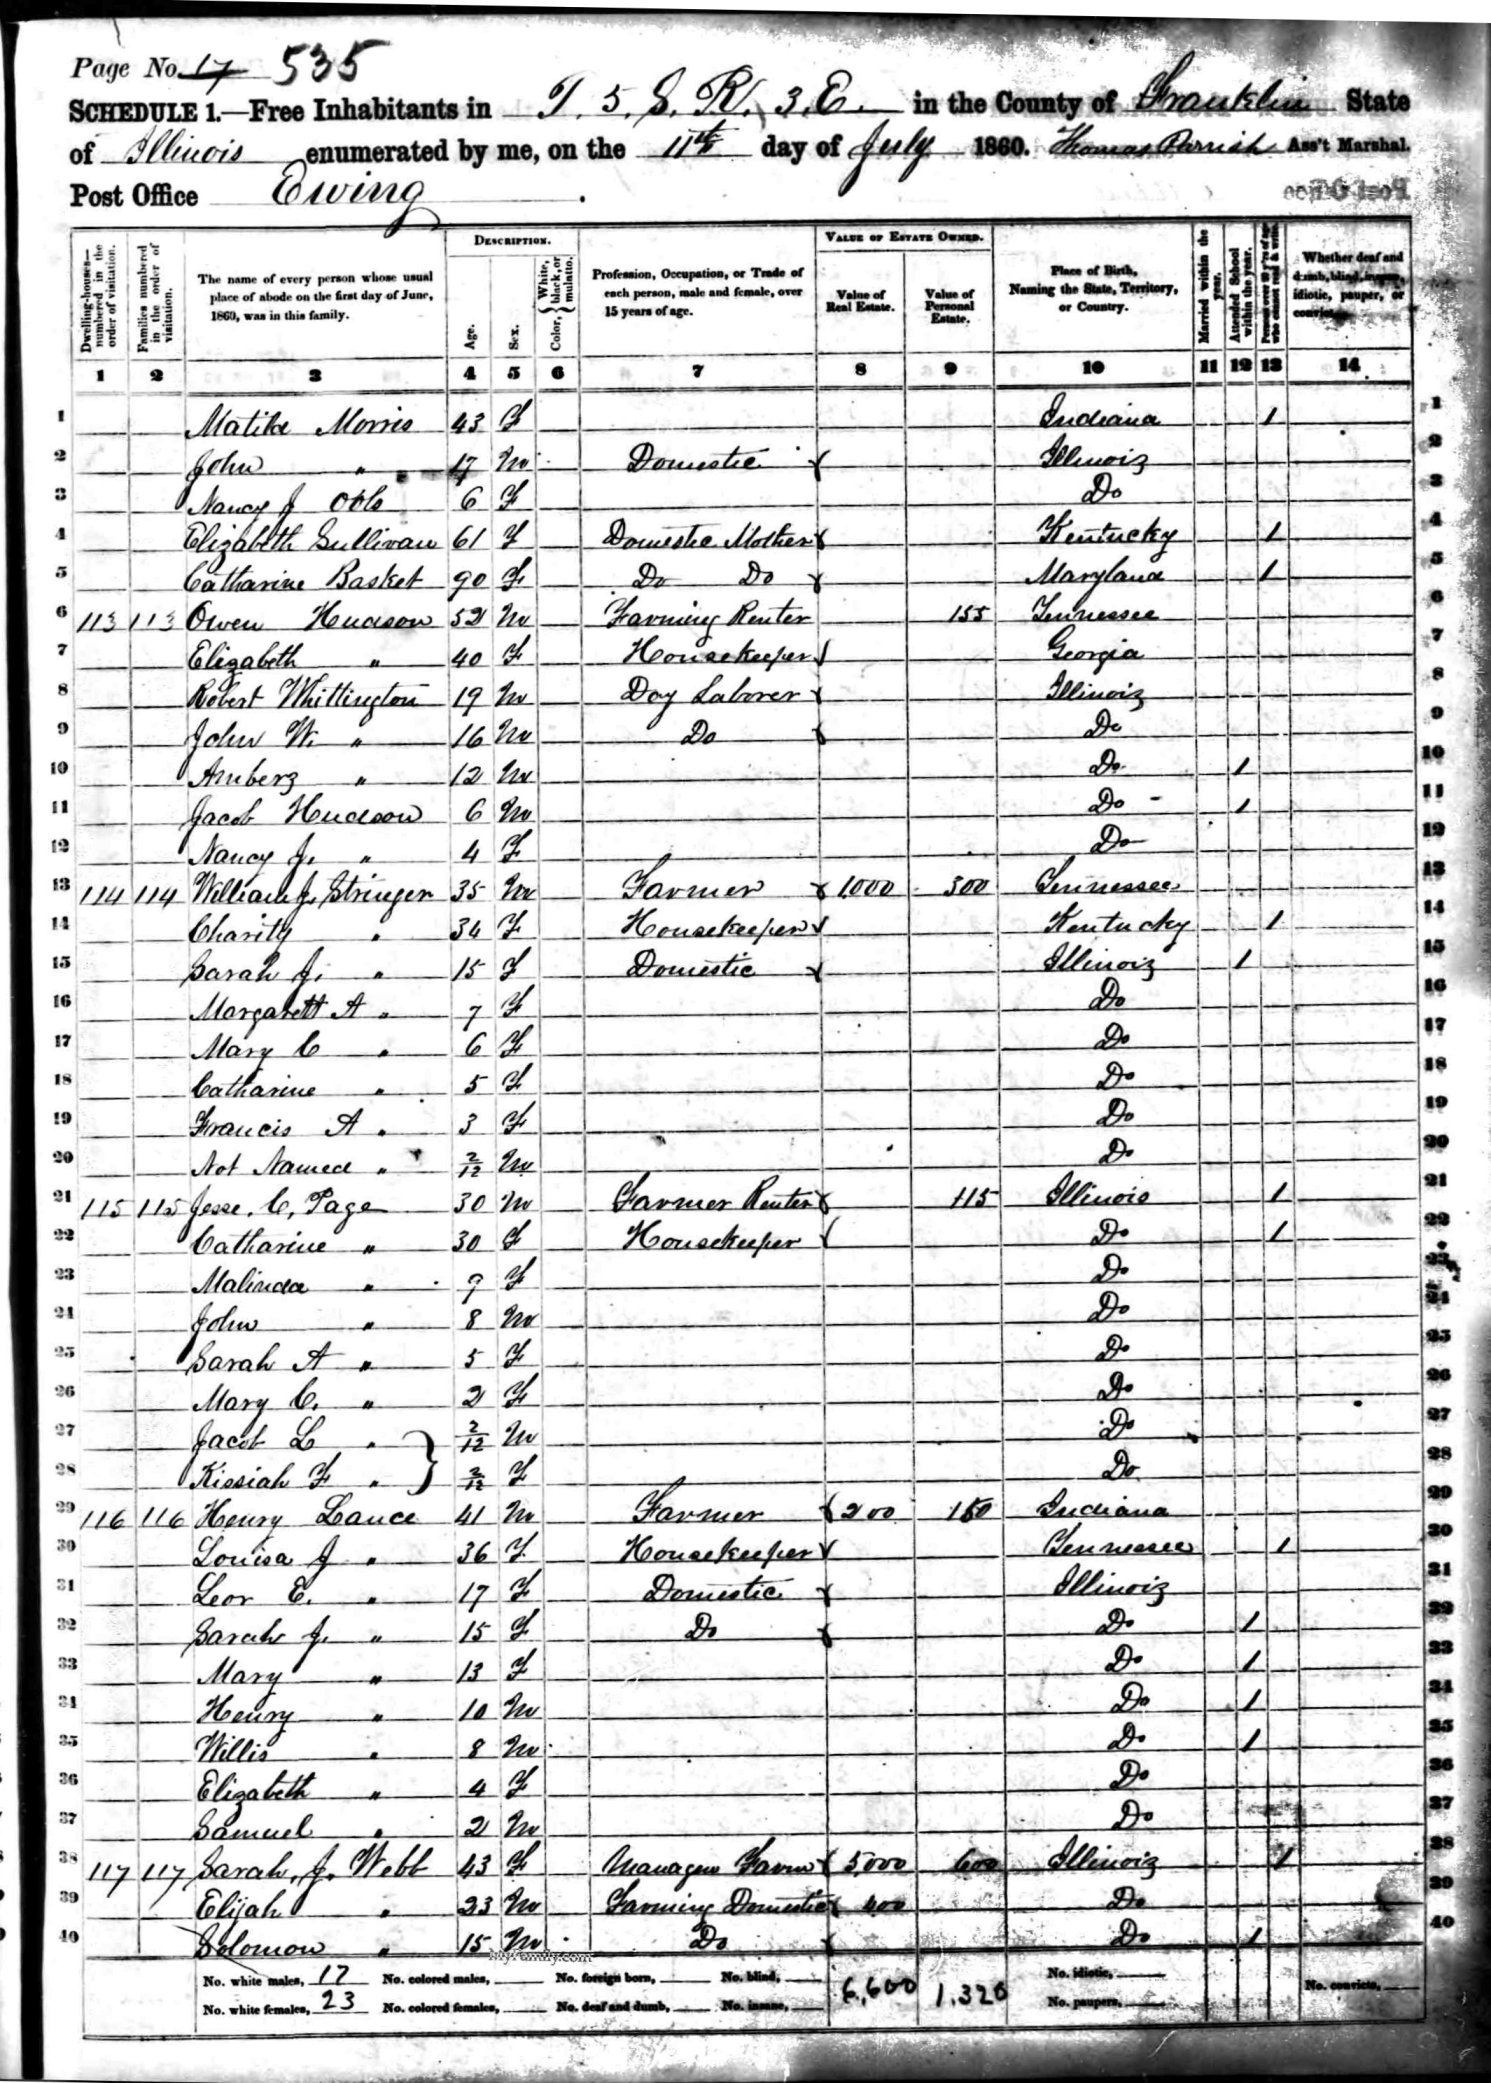 Page No. 17 535
SCHEDULE 1.—Free Inhabitants in T. 5. S. R. 3. E. in the County of Franklin State
of Illinois enumerated by me, on the 11th day of July 1860. Thomas Parrish Ass't Marshal.
Post Office Ewing
Dwelling-houses—numbered in the order of visitation.
Families numbered in the order of visitation.
The name of every person whose usual place of abode on the first day of June, 1860, was in this family.
DESCRIPTION.
Age.
Sex.
Color, { White, black, or mulatto.
Profession, Occupation, or Trade of each person, male and female, over 15 years of age.
VALUE OF ESTATE OWNED.
Value of Real Estate.
Value of Personal Estate.
Place of Birth, Naming the State, Territory, or Country.
Married within the year.
Attended School within the year.
Persons over 20 y'rs of age who cannot read & write.
Whether deaf and dumb, blind, insane, idiotic, pauper, or convict.
1 2 3 4 5 6 7 8 9 10 11 12 13 14
1 Morris 43 F Indiana 1 1
2 John " 17 M Domestic Illinoiz 2
3 Nancy J 6 F Do 3
4 Elizabeth Sullivan 61 F Domestic Mother Kentucky 1 4
5 Catharine Basket 90 F Do Do Maryland 1 5
6 113 113 Owen Hudson 52 M Farming Renter 155 Tennessee 6
7 Elizabeth " 40 F Housekeeper Georgia 7
8 Robert Whittington 19 M Day Laborer Illinoiz 8
9 John W. " 16 M Do Do 9
10 Amberz " 12 M Do 1 10
11 Jacob Hudson 6 M Do 1 11
12 Nancy J. " 4 F Do 12
13 114 114 William J. Stringer 35 M Farmer 1000 300 Tennessee 13
14 Charity " 34 F Housekeeper Kentucky 1 14
15 Sarah J. " 15 F Domestic Illinoiz 1 15
16 Margarett A " 7 F Do 16
17 Mary C " 6 F Do 17
18 Catharine " 5 F Do 18
19 Francis A " 3 F Do 19
20 Not Named " 2/12 M Do 20
21 115 115 Jesse. C. Page 30 M Farmer Renter 115 Illinois 1 21
22 Catharine " 30 F Housekeeper Do 1 22
23 Malinda " 9 F Do 23
24 John " 8 M Do 24
25 Sarah A " 5 F Do 25
26 Mary C. " 2 F Do 26
27 Jacob L " 2/12 M Do 27
28 Kissiah F " 2/12 F Do 28
29 116 116 Henry Lance 41 M Farmer 200 150 Indiana 29
30 Louisa J " 36 F Housekeeper Tennessee 1 30
31 Leor E. " 17 F Domestic Illinoiz 31
32 Sarah J. " 15 F Do Do 1 32
33 Mary " 13 F Do 1 33
34 Henry " 10 M Do 1 34
35 Willis " 8 M Do 1 35
36 Elizabeth " 4 F Do 36
37 Samuel " 2 M Do 37
38 117 117 Sarah. J. Webb 43 F Farm 5000 600 Illinoiz 1 38
39 Elijah " 23 M Farming Domestic 400 Do 39
40 Solomon " 15 M Do Do 1 40
MyFamily.com
No. white males, 17 No. colored males, No. foreign born, No. blind, 6,600 1,320 No. idiotic, No. convicts,
No. white females, 23 No. colored females, No. deaf and dumb, No. insane, No. paupers,